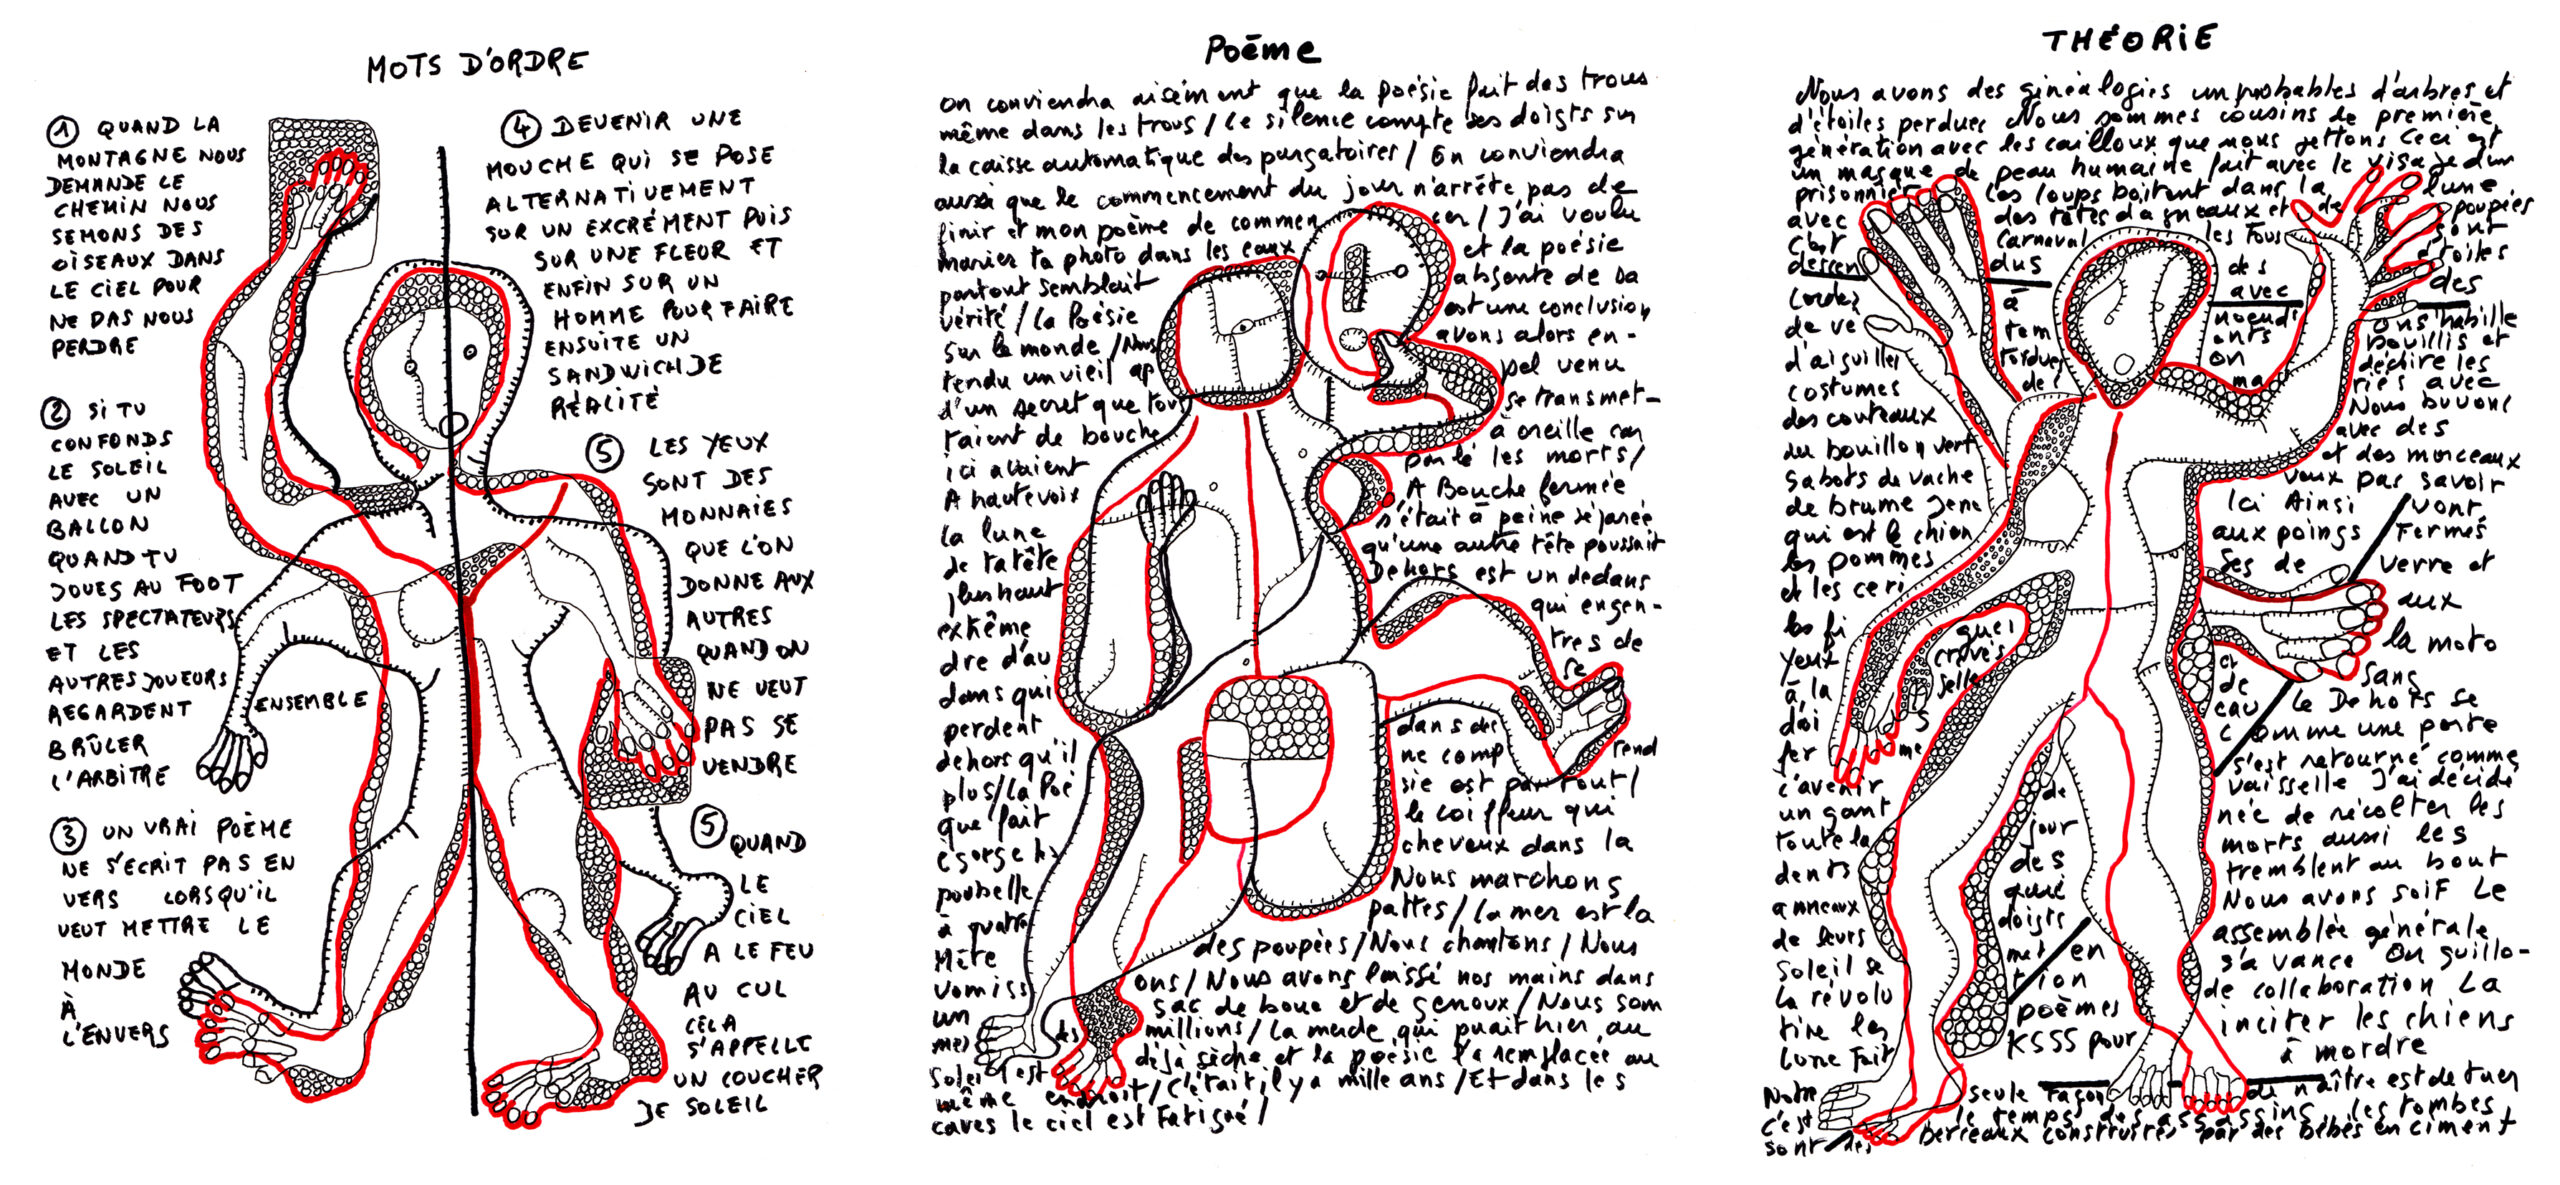 MOTS D'ORDRE
① QUAND LA
MONTAGNE NOUS
DEMANDE LE
CHEMIN NOUS
SEMONS DES
OISEAUX DANS
LE CIEL POUR
NE PAS NOUS
PERDRE
② SI TU
CONFONDS
LE SOLEIL
AVEC UN
BALLON
QUAND TU
JOUES AU FOOT
LES SPECTATEURS
ET LES
AUTRES JOUEURS
REGARDENT
ENSEMBLE
BRÛLER
L'ARBITRE
③ UN VRAI POÈME
NE S'ECRIT PAS EN
VERS LORSQU'IL
VEUT METTRE LE
MONDE
À
L'ENVERS
④ DEVENIR UNE
MOUCHE QUI SE POSE
ALTERNATIVEMENT
SUR UN EXCRÉMENT PUIS
SUR UNE FLEUR ET
ENFIN SUR UN
HOMME POUR FAIRE
ENSUITE UN
SANDWICH DE
RÉALITÉ
⑤ LES YEUX
SONT DES
MONNAIES
QUE L'ON
DONNE AUX
AUTRES
QUAND ON
NE VEUT
PAS SE
VENDRE
⑤ QUAND
LE
CIEL
A LE FEU
AU CUL
CELA
S'APPELLE
UN COUCHER
DE SOLEIL
Poème
On conviendra aisément que la poésie fait des trous
même dans les trous / Le silence compte ses doigts sur
la caisse automatique des purgatoires / On conviendra
aussi que le commencement du jour n'arrête pas de
finir et mon poème de commencer / J'ai voulu
marier ta photo dans les eaux et la poésie
partout semblait absente de sa
vérité / La Poésie est une conclusion
sur le monde / Nous avons alors en-
tendu un vieil ap pel venu
d'un secret que tou se transmet-
taient de bouche à oreille car
ici avaient parlé les morts /
A haute voix A Bouche fermée
la lune s'était à peine séparée
de ta tête qu'une autre tête poussait
plus haut Dehors est un dedans
extrême qui engen-
dre d'au tres de
dans qui se
perdent dans des
dehors qu'il ne comp rend
plus / La Poé sie est partout /
que fait le coiffeur qui
égorge les cheveux dans la
poubelle Nous marchons
à quatre pattes / La mer est la
des poupées / Nous chantons / Nous
vomiss ons / Nous avons laissé nos mains dans
un sac de boue et de genoux / Nous som
mes des millions / La merde qui puait hier au
Soleil est déjà sèche et la poésie l'a remplacée au
même endroit / C'était il y a mille ans / Et dans les
caves le ciel est fatigué /
THÉORIE
Nous avons des généalogies improbables d'arbres et
d'étoiles perdues Nous sommes cousins de première
génération avec les cailloux que nous jettons Ceci est
un masque de peau humaine fait avec le visage d'un
prisonnier Les loups boitent dans la lune
avec des têtes d'agneaux et de poupées
C'est Carnaval les Fous sont
descen dus des étoiles
à avec des
de ve
d'aiguilles tordues
costumes de déchire les
des couteaux avec
du bouillon vert avec des
sabots de vache et des morceaux
de brume Je ne veux pas savoir
qui est le chien Ici Ainsi vont
les pommes aux poings Fermés
et les ceri ses de verre et
aux
yeux crevés la moto
à la sans
le Dehors se
comme une porte
l'avenir s'est retourné comme
un gant de vaisselle J'ai décidé
toute la jour née de récolter les
dents des morts aussi les
anneaux tremblent au bout
de leurs doigts Nous avons soif Le
Soleil se met en assemblée générale
La révolu tion s'avance On guillo-
tine les poèmes de collaboration La
Lune Fait KSSS pour inciter les chiens
à mordre
Notre seule façon de naître est de tuer
c'est le temps des assassins les tombes
sont des berceaux construites par des bébés en ciment